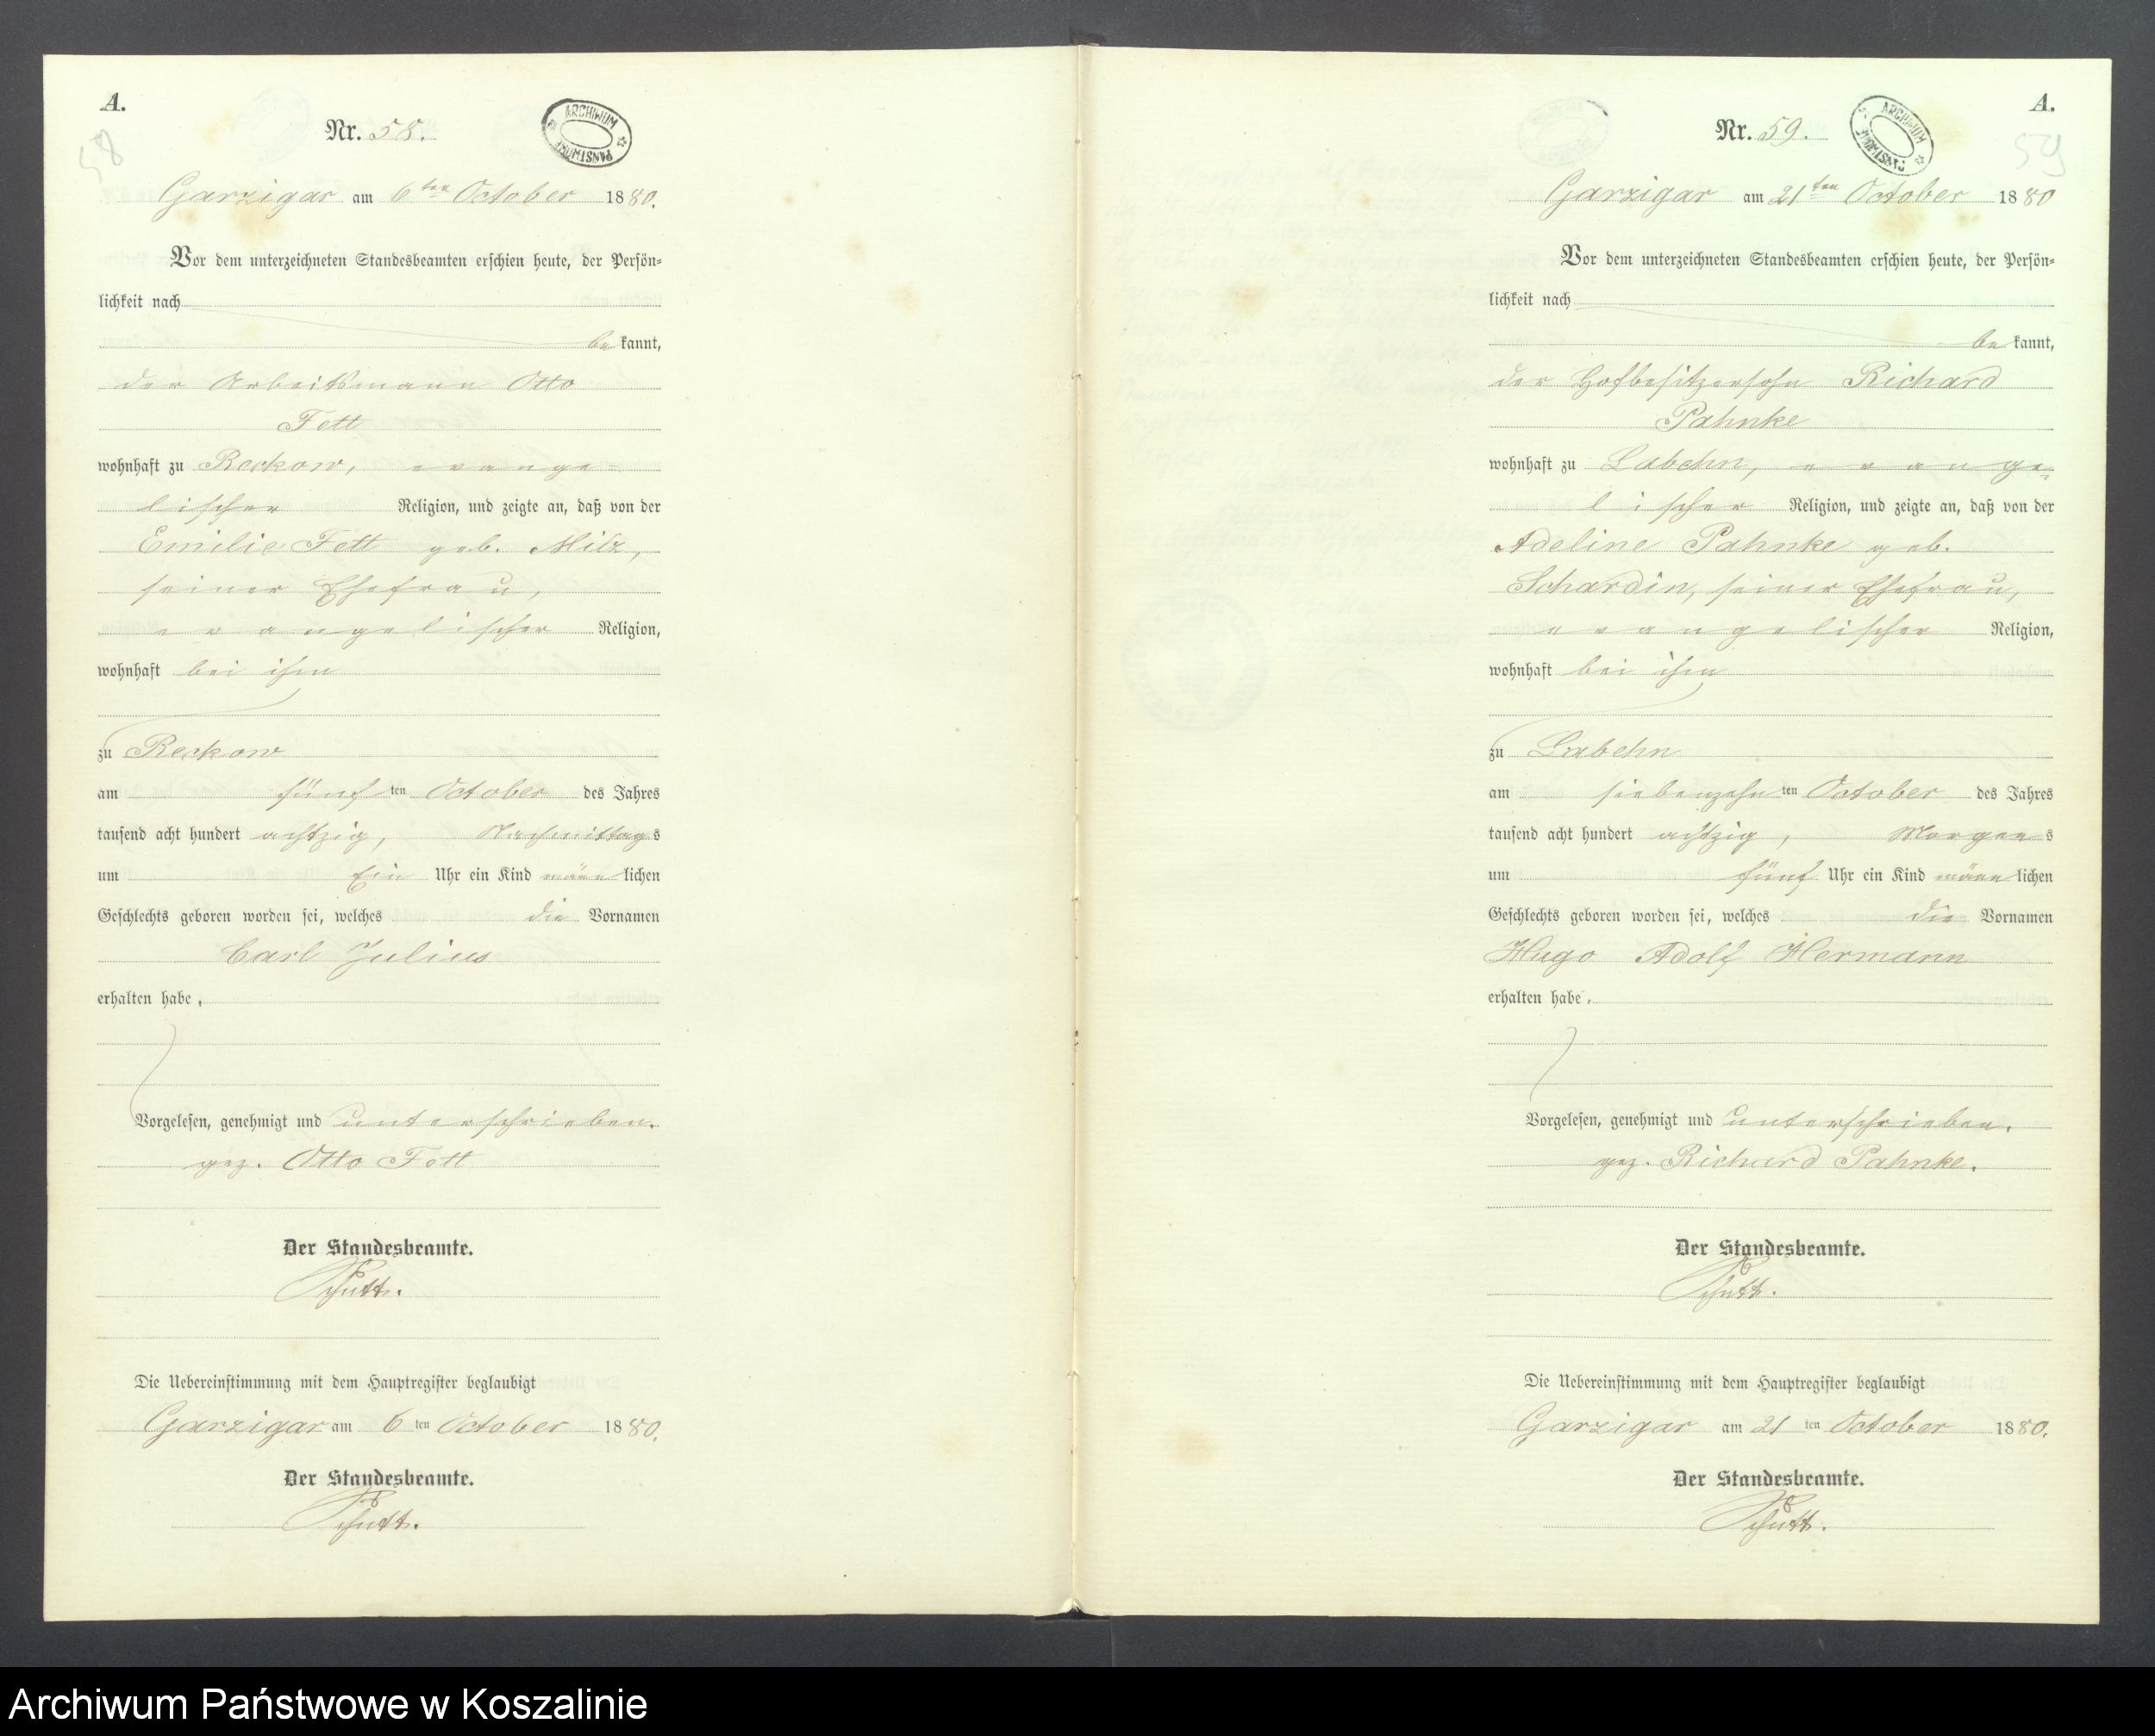 A.
58
Nr. 58.
ARCHIWUM PAŃSTWOWE
Garzigar am 6ten October 1880.
Vor dem unterzeichneten Standesbeamten erschien heute, der Persön-
lichkeit nach
bekannt,
der Arbeitsmann Otto
Fett
wohnhaft zu Reckow, evange-
lischer Religion, und zeigte an, daß von der
Emilie Fett geb. Milz,
seiner Ehefrau,
evangelischer Religion,
wohnhaft bei ihm
zu Reckow
am fünften October des Jahres
tausend acht hundert achtzig, Nachmittags
um Ein Uhr ein Kind männlichen
Geschlechts geboren worden sei, welches die Vornamen
Carl Julius
erhalten habe.
Vorgelesen, genehmigt und unterschrieben.
gez. Otto Fett
Der Standesbeamte.
Schutt.
Die Uebereinstimmung mit dem Hauptregister beglaubigt
Garzigar am 6ten October 1880.
Der Standesbeamte.
Schutt.
A.
59
Nr. 59.
ARCHIWUM PAŃSTWOWE
Garzigar am 21ten October 1880
Vor dem unterzeichneten Standesbeamten erschien heute, der Persön-
lichkeit nach
bekannt,
der Hofbesitzersohn Richard
Pahnke
wohnhaft zu Labehn, evange-
lischer Religion, und zeigte an, daß von der
Adeline Pahnke geb.
Schardin, seiner Ehefrau,
evangelischer Religion,
wohnhaft bei ihm
zu Labehn
am siebenzehnten October des Jahres
tausend acht hundert achtzig, Morgens
um fünf Uhr ein Kind männlichen
Geschlechts geboren worden sei, welches die Vornamen
Hugo Adolf Hermann
erhalten habe.
Vorgelesen, genehmigt und unterschrieben.
gez. Richard Pahnke.
Der Standesbeamte.
Schutt.
Die Uebereinstimmung mit dem Hauptregister beglaubigt
Garzigar am 21ten October 1880.
Der Standesbeamte.
Schutt.
Archiwum Państwowe w Koszalinie